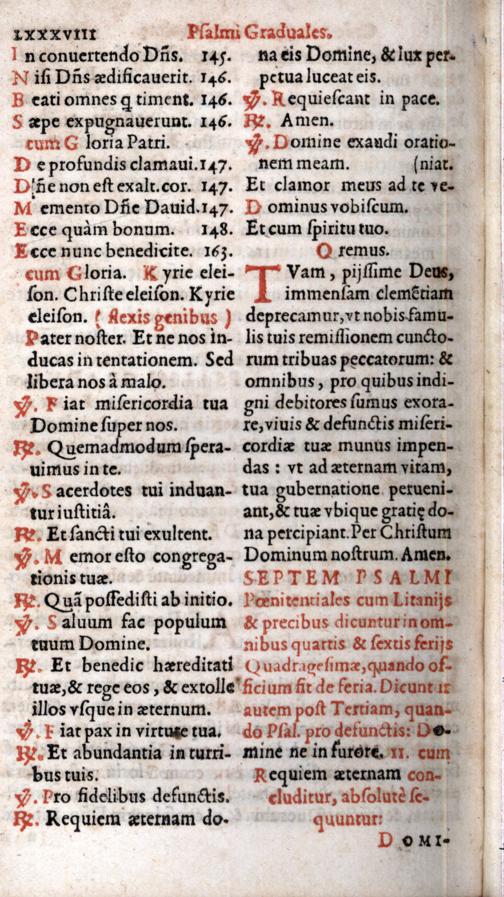 LXXXVIII
Psalmi Graduales.
In conuertendo Dñs. 145.
Nisi Dñs ædificauerit. 146.
Beati omnes q timent. 146.
Sæpe expugnauerunt. 146.
cum Gloria Patri.
De profundis clamaui. 147.
Dñe non est exalt. cor. 147.
Memento Dñe Dauid. 147.
Ecce quàm bonum. 148.
Ecce nunc benedicite. 163.
cum Gloria. Kyrie elei-
son. Christe eleison. Kyrie
eleison. (flexis genibus)
Pater noster. Et ne nos in-
ducas in tentationem. Sed
libera nos à malo.
℣. Fiat misericordia tua
Domine super nos.
℟. Quemadmodum spera-
uimus in te.
℣. Sacerdotes tui induan-
tur iustitiâ.
℟. Et sancti tui exultent.
℣. Memor esto congrega-
tionis tuæ.
℟. Quã possedisti ab initio.
℣. Saluum fac populum
tuum Domine.
℟. Et benedic hæreditati
tuæ, & rege eos, & extolle
illos vsque in æternum.
℣. Fiat pax in virtute tua.
℟. Et abundantia in turri-
bus tuis.
℣. Pro fidelibus defunctis.
℟. Requiem æternam do-
na eis Domine, & lux per-
petua luceat eis.
℣. Requiescant in pace.
℟. Amen.
℣. Domine exaudi oratio-
nem meam. (niat.
Et clamor meus ad te ve-
Dominus vobiscum.
Et cum spiritu tuo.
Oremus.
TVam, pijssime Deus,
immensam clemẽtiam
deprecamur, vt nobis famu-
lis tuis remissionem cuncto-
rum tribuas peccatorum: &
omnibus, pro quibus indi-
gni debitores sumus exora-
re, viuis & defunctis miseri-
cordiæ tuæ munus impen-
das: vt ad æternam vitam,
tua gubernatione perueni-
ant, & tuæ vbique gratię do-
na percipiant. Per Christum
Dominum nostrum. Amen.
SEPTEM PSALMI
Pœnitentiales cum Litanijs
& precibus dicuntur in om-
nibus quartis & sextis ferijs
Quadragesimæ, quando of-
ficium fit de feria. Dicunt ur
autem post Tertiam, quan-
do Psal. pro defunctis: Do-
mine ne in furore. 11. cum
Requiem æternam con-
cluditur, absolutè se-
quuntur:
DOMI-